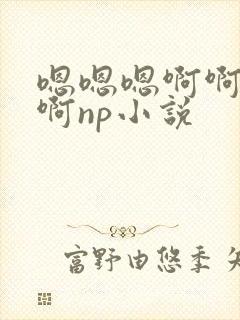 嗯嗯嗯啊啊
啊np小説
富野由悠季